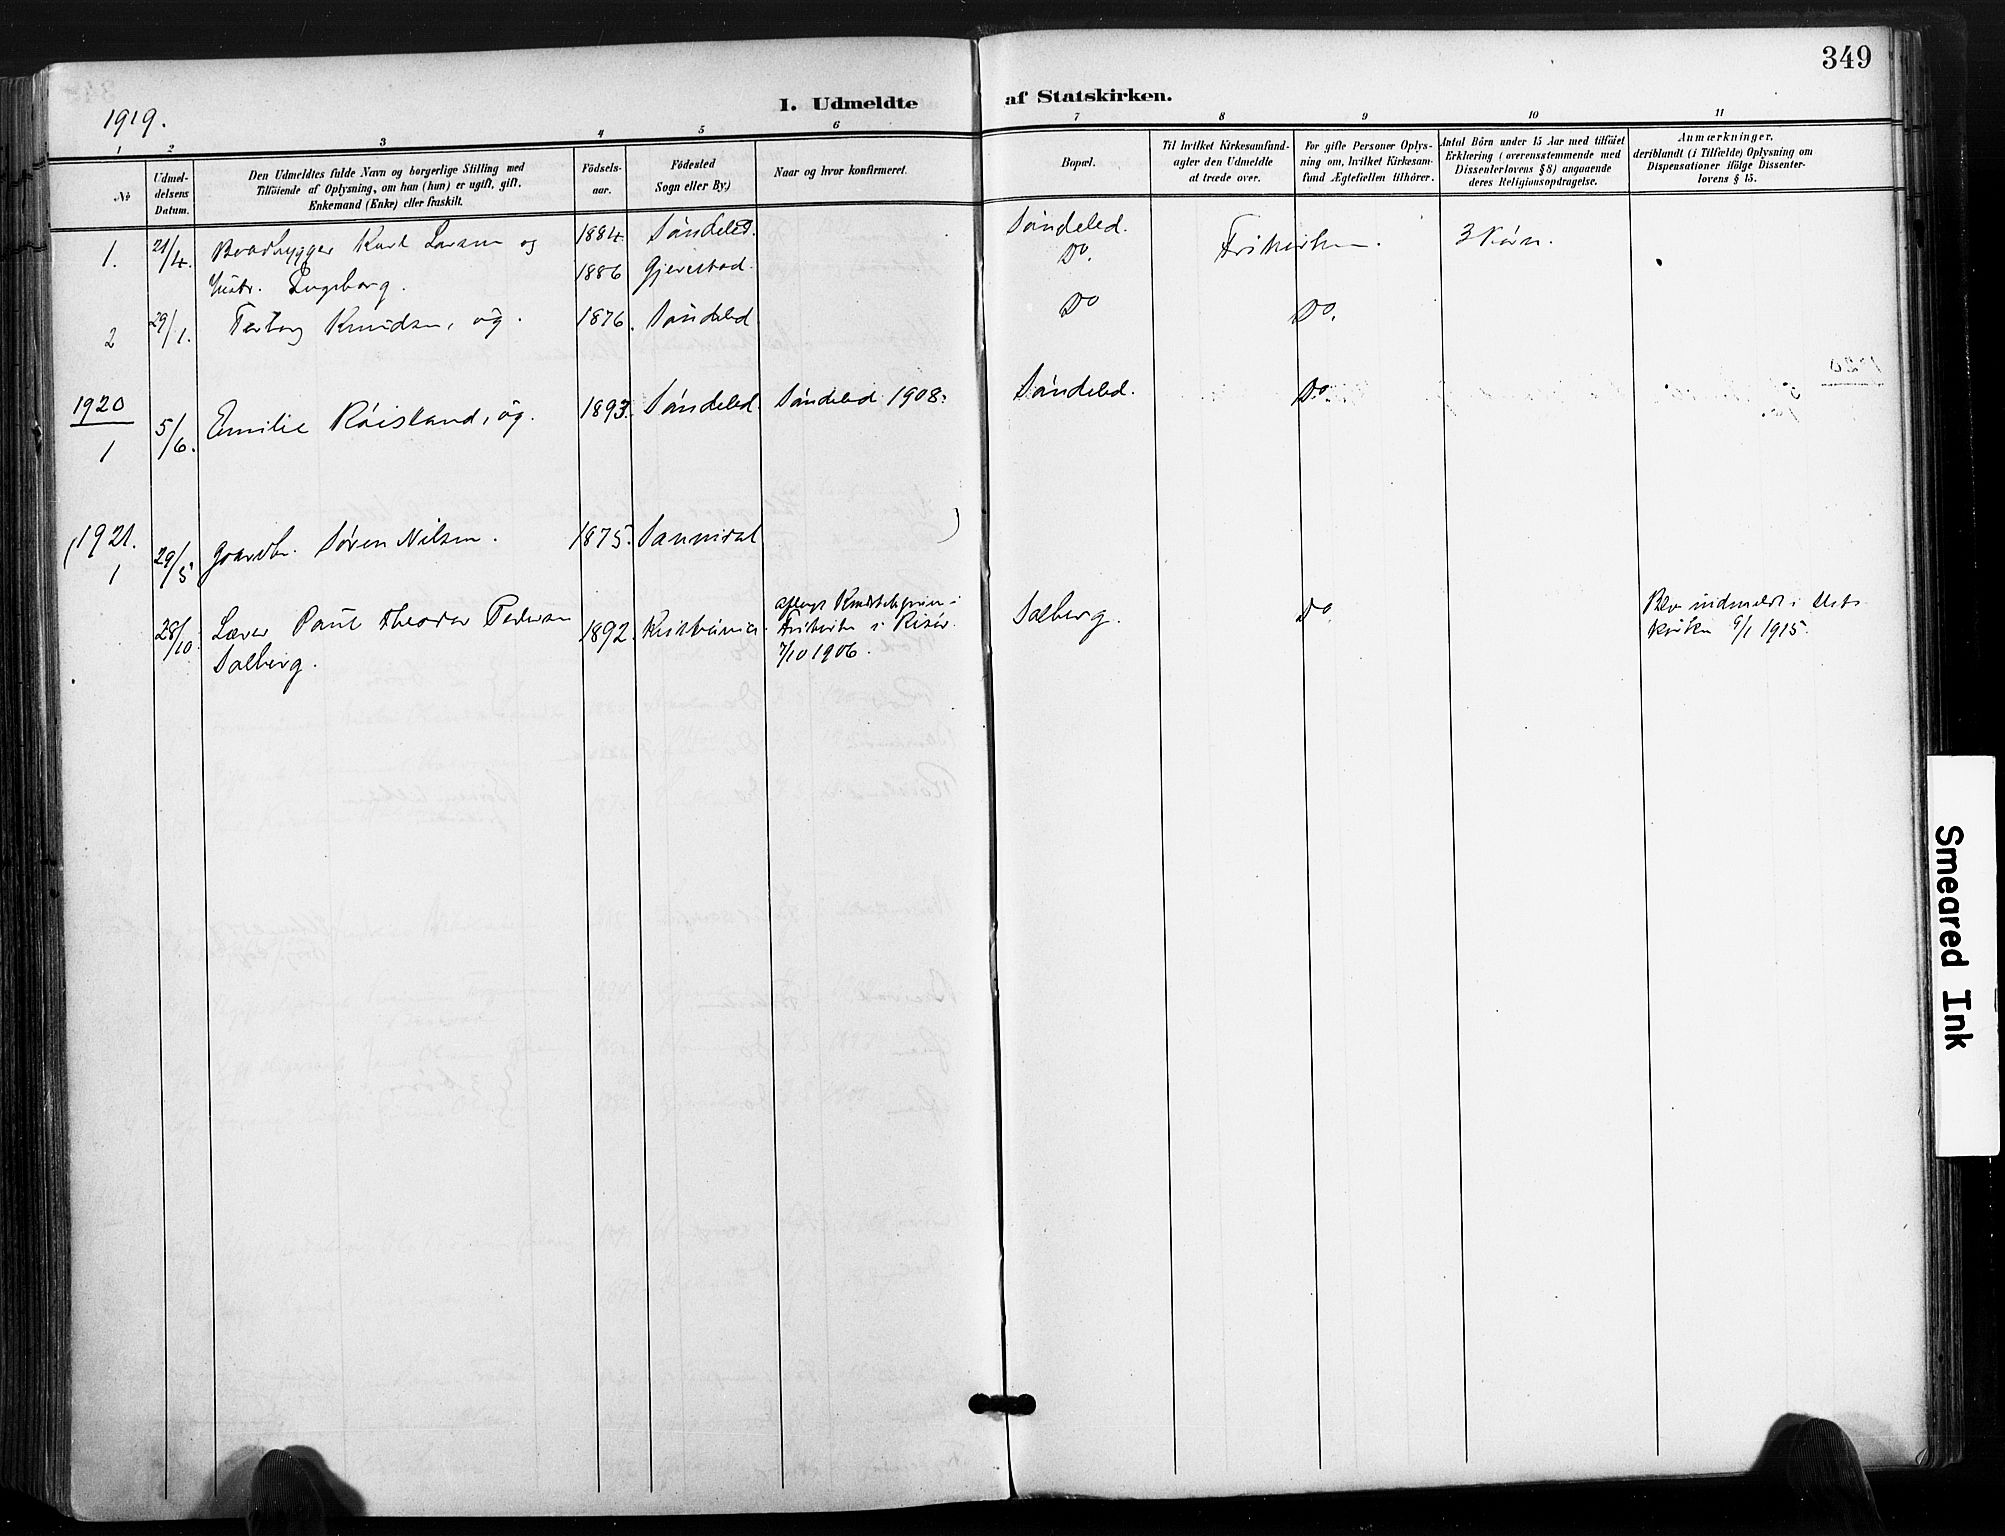 349
1919.
I. Udmeldte af Statskirken.
1 2 3 4 5 6 7 8 9 10 11
No
Udmel-
delsens
Datum.
Den Udmeldtes fulde Navn og borgerlige Stilling med
Tilföiende af Oplysning, om han (hun) er ugift, gift,
Enkemand (Enke) eller fraskilt.
Födsels-
aar.
Födested
Sogn eller By.)
Naar og hvor konfirmeret.
Bopæl.
Til hvilket Kirkesamfund
agter den Udmeldte
at træde over.
For gifte Personer Oplys-
ning om, hvilket Kirkesam-
fund Ægtefællen tilhörer.
Antal Börn under 15 Aar med tilföiet
Erklæring (overensstemmende med
Dissenterlovens § 8) angaaende
deres Religionsopdragelse.
Anmærkninger,
deriblandt (i Tilfælde) Oplysning om
Dispensationer ifölge Dissenter-
lovens § 15.
1. 21/4. Baadbygger Karl Larsen og 1884 Søndeled. Søndeled. Frikirken. 3 børn.
Hustr. Ingeborg. 1886 Gjerestad. Do.
2 29/1. Terborg Knudsen, ug. 1876. Søndeled Do Do.
1920
1 5/6. Emilie Røisland, ug. 1893. Søndeled. Søndeled 1908. Søndeled. Do.
(1921.
1 29/5 Gaardbr. Søren Nilsen. 1875. Sannidal )
28/10. Lærer Paul Theodor Pedersen 1892. Kristiania. Solberg. Do.
Solberg.
aflagt
Frikirke i Risør.
7/10 1906.
Blev indmeldt i Stats
kirken 9/1 1915.
Smeared Ink